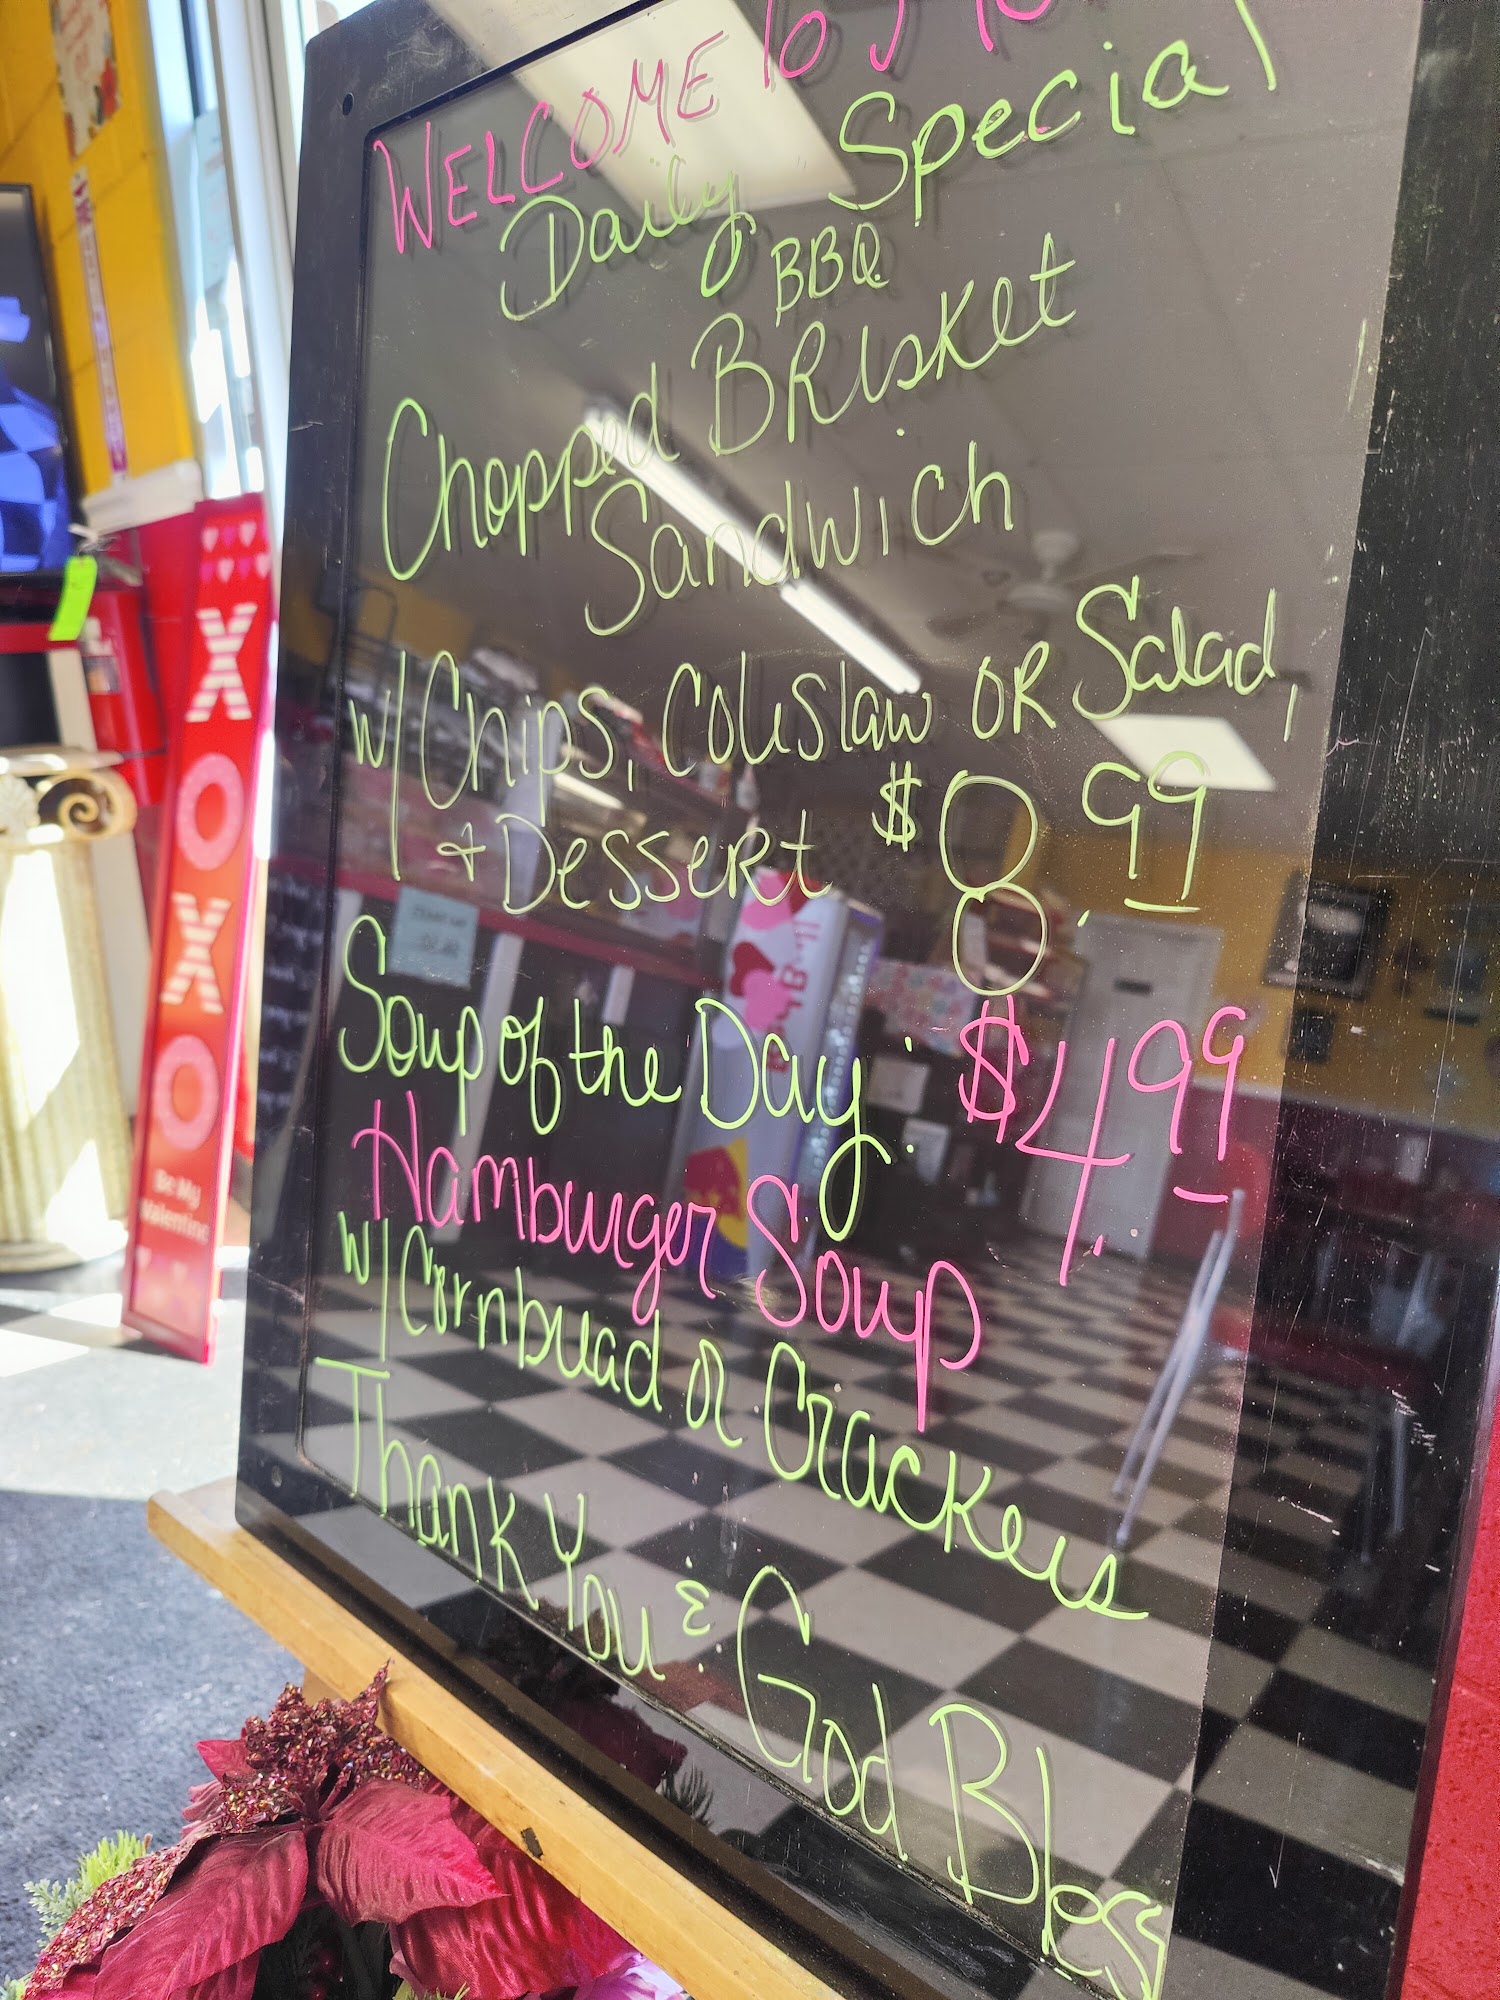 WELCOME to
Daily Special
BBQ
Chopped BRisket
Sandwich
w/ Chips, Coleslaw OR Salad,
+ Dessert $8.99
Soup of the Day: $4.99
Hamburger Soup
w/ Cornbread or Crackers
Thank You & God Bless
X
O
X
O
Be My
Valentine